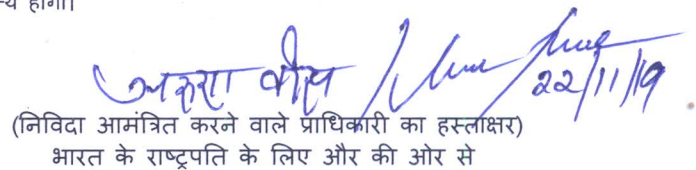 होगा।
अरुणा बोस 22/11/19
(निविदा आमंत्रित करने वाले प्राधिकारी का हस्ताक्षर)
भारत के राष्ट्रपति के लिए और की ओर से